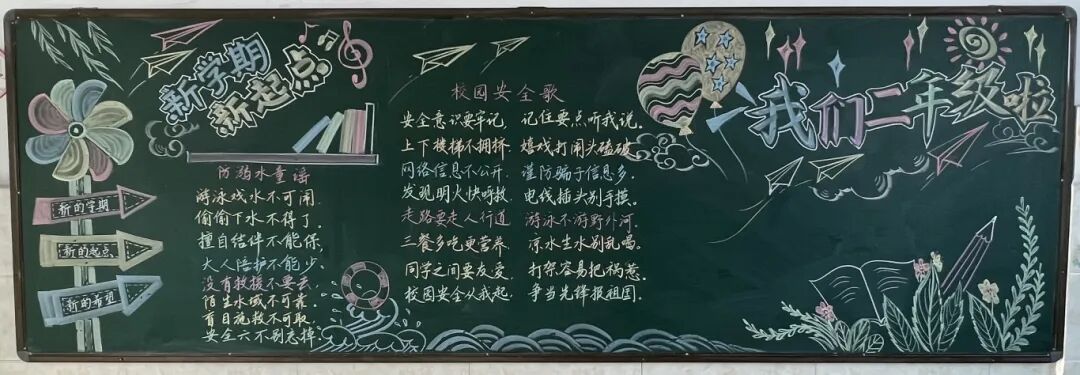 新学期
新起点
新的学期
新的起点
新的希望
防溺水童谣
游泳戏水不可闹
偷偷下水不得了.
擅自结伴不能保,
大人陪护不能少.
没有救援不要去
陌生水域不可靠.
盲目施救不可取.
安全六不别忘掉.
校园安全歌
安全意识要牢记, 记住要点听我说.
上下楼梯不拥挤. 嬉戏打闹头磕破.
网络信息不公开. 谨防骗子信息多.
发现明火快呼救. 电线插头别手摸.
走路要走人行道 游泳不游野外河.
三餐多吃更营养. 凉水生水别乱喝.
同学之间要友爱. 打架容易把祸惹.
校园安全从我起. 争当先锋报祖国.
我们二年级啦